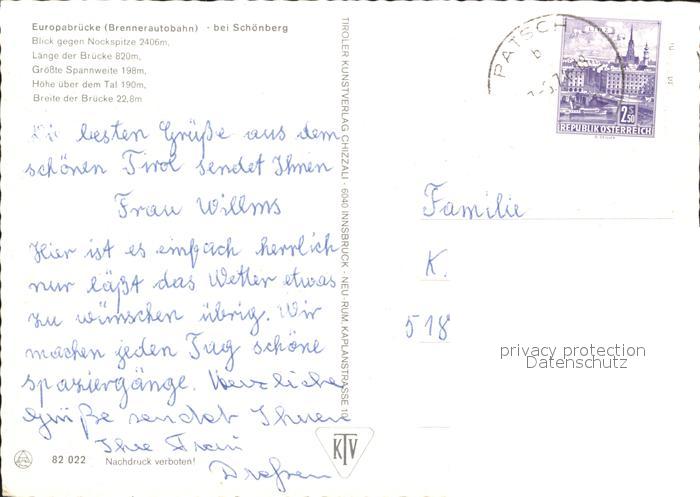 Europabrücke (Brennerautobahn) - bei Schönberg
Blick gegen Nockspitze 2406m,
Länge der Brücke 820m,
Größte Spannweite 198m,
Höhe über dem Tal 190m,
Breite der Brücke 22,8m
besten Grüße aus dem
schönen Tirol sendet Ihnen
Frau Willms
Hier ist es einfach herrlich
nur läßt das Wetter etwas
zu wünschen übrig. Wir
machen jeden Tag schöne
spaziergänge. Herzliche
Grüße sendet Ihnen
Ihre Frau
82 022 Nachdruck verboten!
TIROLER KUNSTVERLAG CHIZZALI · 6040 INNSBRUCK - NEU-RUM, KAPLANSTRASSE 10
KTV
PATSCH
b
2 S 50
REPUBLIK ÖSTERREICH
Familie
K.
518
privacy protection
Datenschutz